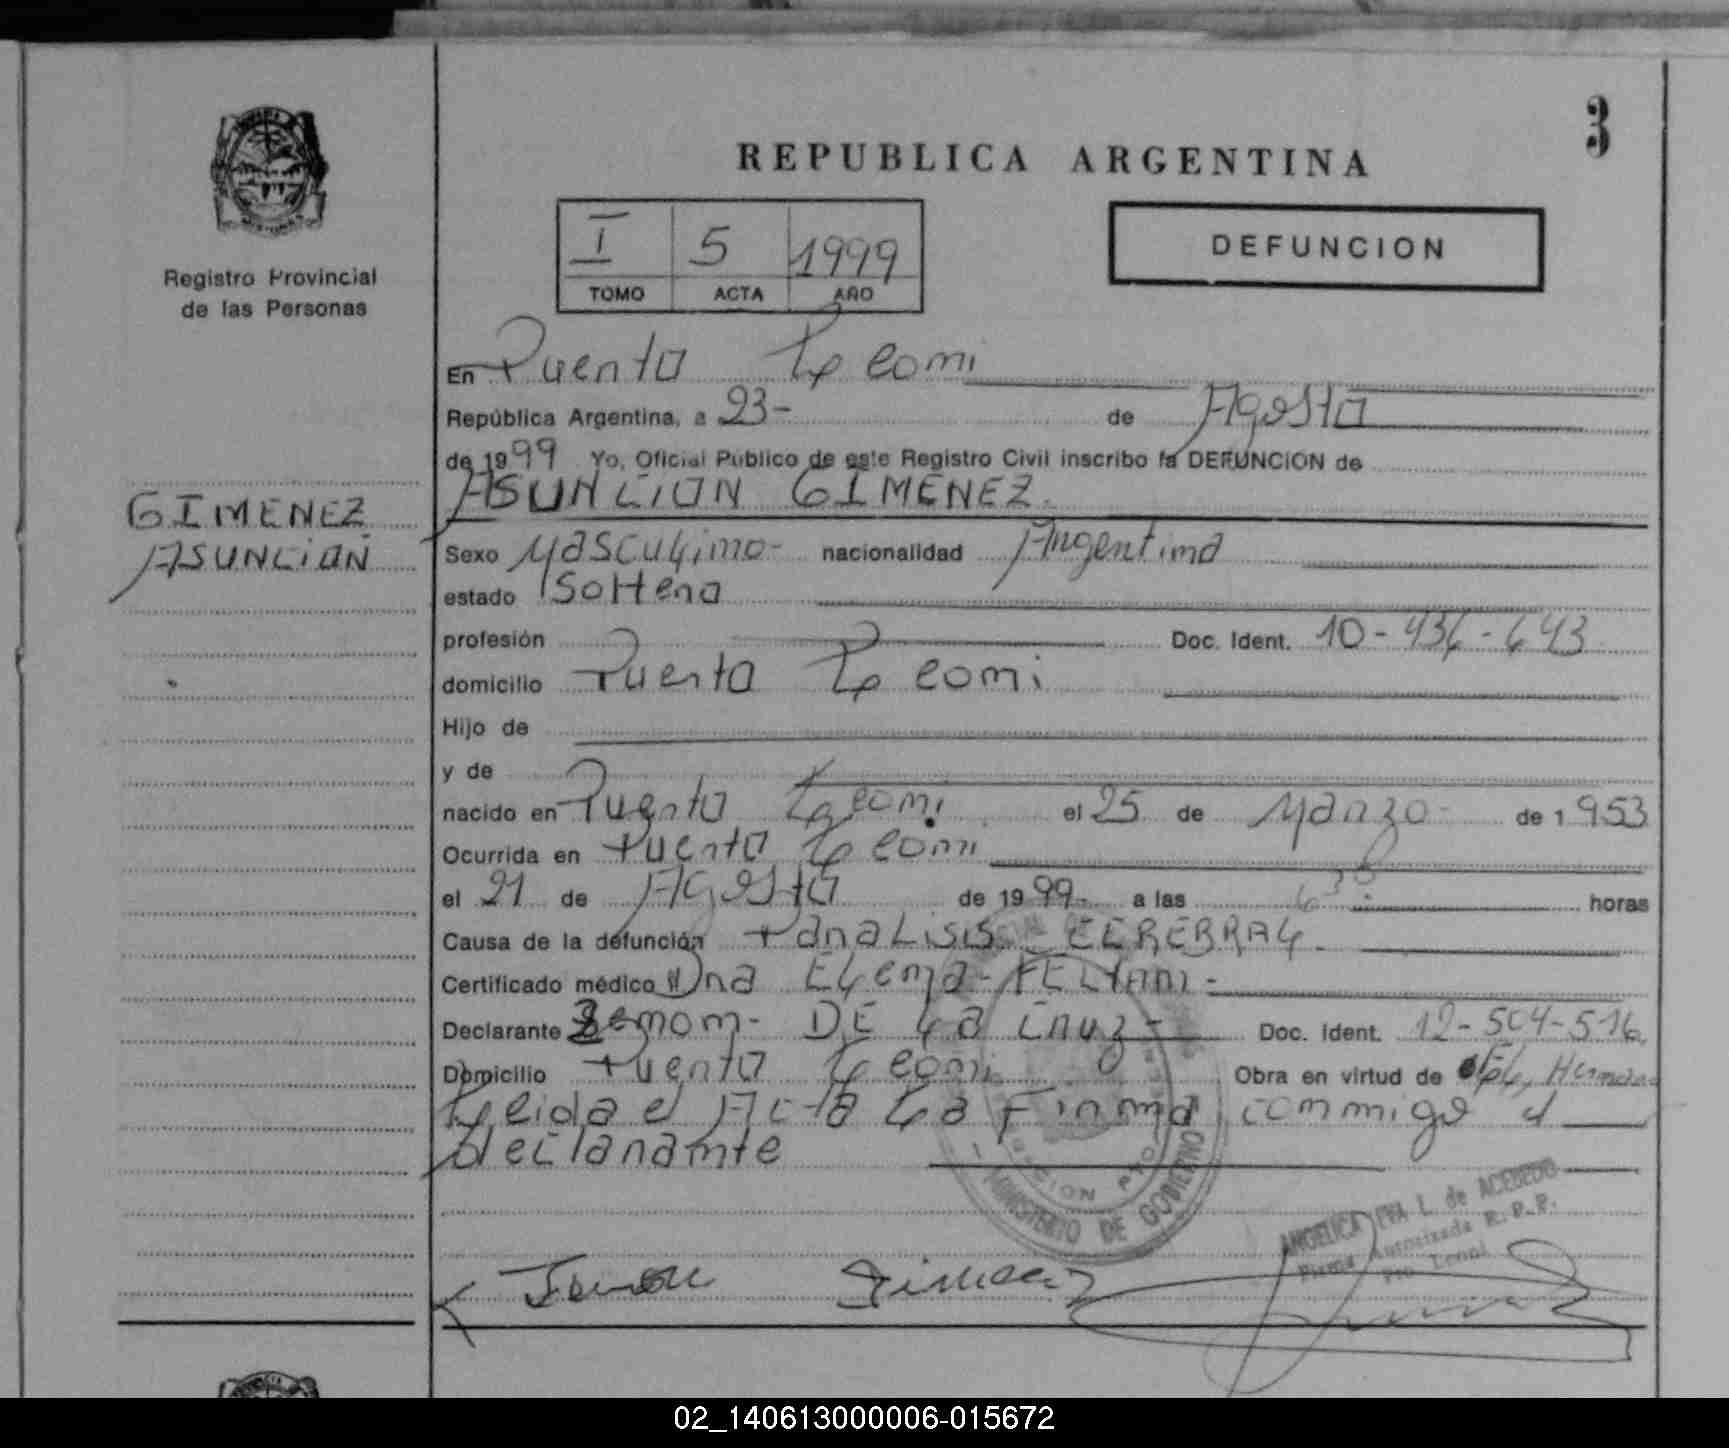 3
REPUBLICA ARGENTINA
I 5 1999
TOMO ACTA AÑO
DEFUNCION
Registro Provincial
de las Personas
GIMENEZ
ASUNCION
En Puerto Leoni
República Argentina, a 23- de Agosto
de 1999 Yo, Oficial Público de este Registro Civil inscribo la DEFUNCION de
ASUNCION GIMENEZ.
Sexo Masculino- nacionalidad Argentina
estado Soltero
profesión Doc. Ident. 10-436-643
domicilio Puerto Leoni
Hijo de
y de
nacido en Puerto Leoni el 25 de Marzo- de 1953
Ocurrida en Puerto Leoni
el 21 de Agosto de 1999- a las 6 30 horas
Causa de la defunción Paralisis CEREBRAL.
Certificado médico Dra Elena
Declarante Ramon- DE La Cruz- Doc. Ident. 12-504-516
Domicilio Puerto Leoni Obra en virtud de El, Hermano
Leida el Acta La Firma conmigo el
declarante
MINISTERIO DE GOBIERNO
ANGELICA EVA L. de ACEBEDO
Firma Autorizada R.P.P.
Pto Leoni
Gimenez
02_140613000006-015672